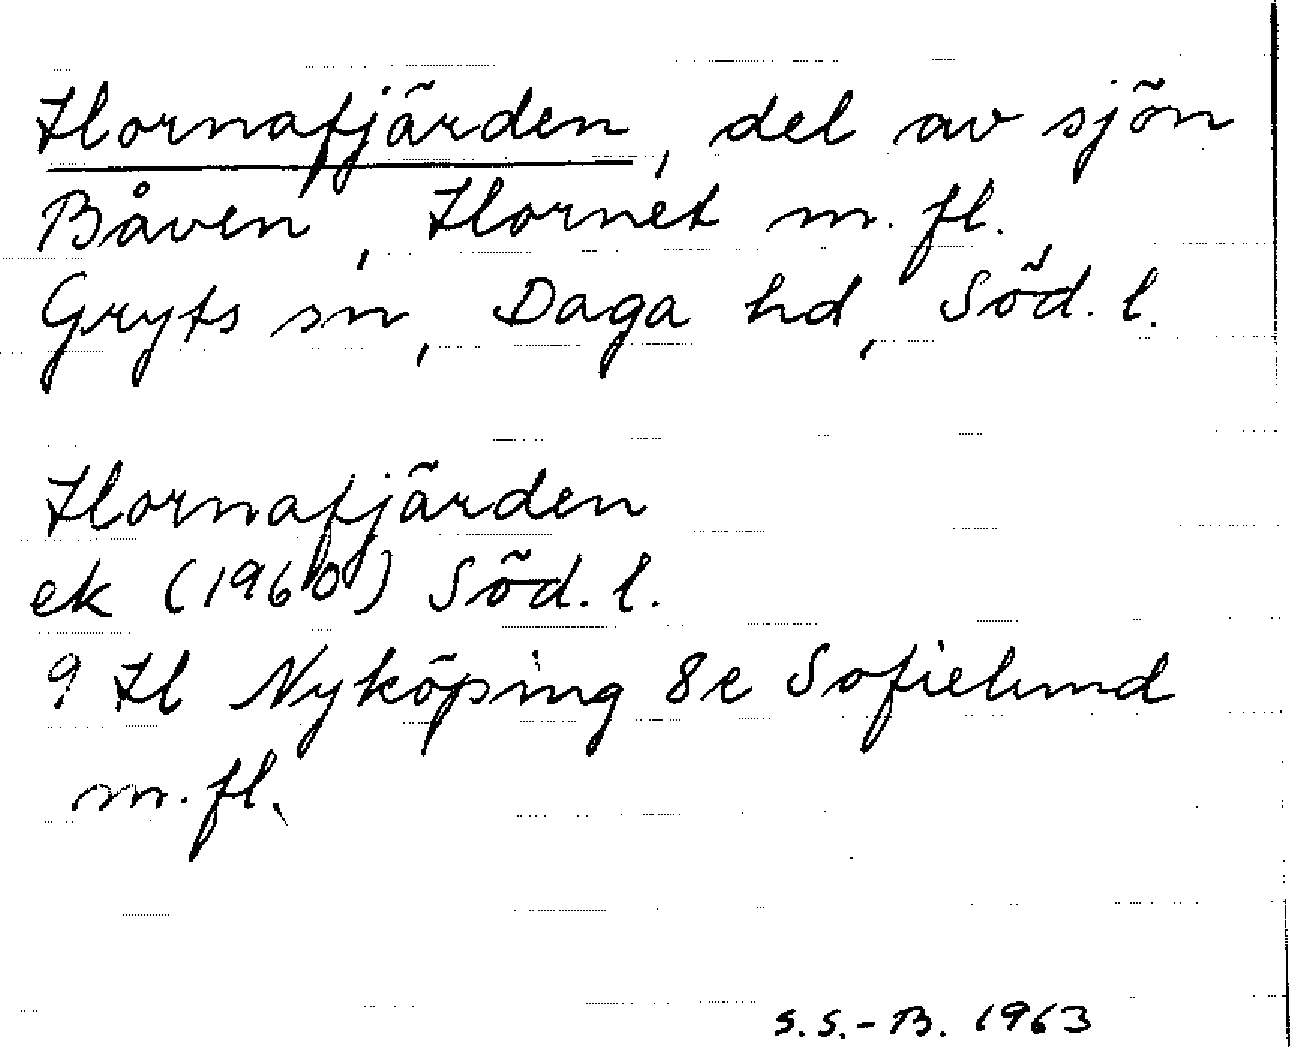 Hornafjärden, del av sjön
Båven, Hornet m. fl.
Gryts sn, Daga hd, Söd. l.
Hornafjärden
ek (1960) Söd. l.
9 H Nyköping 8e Sofielund
m. fl.
S. S.-B. 1963